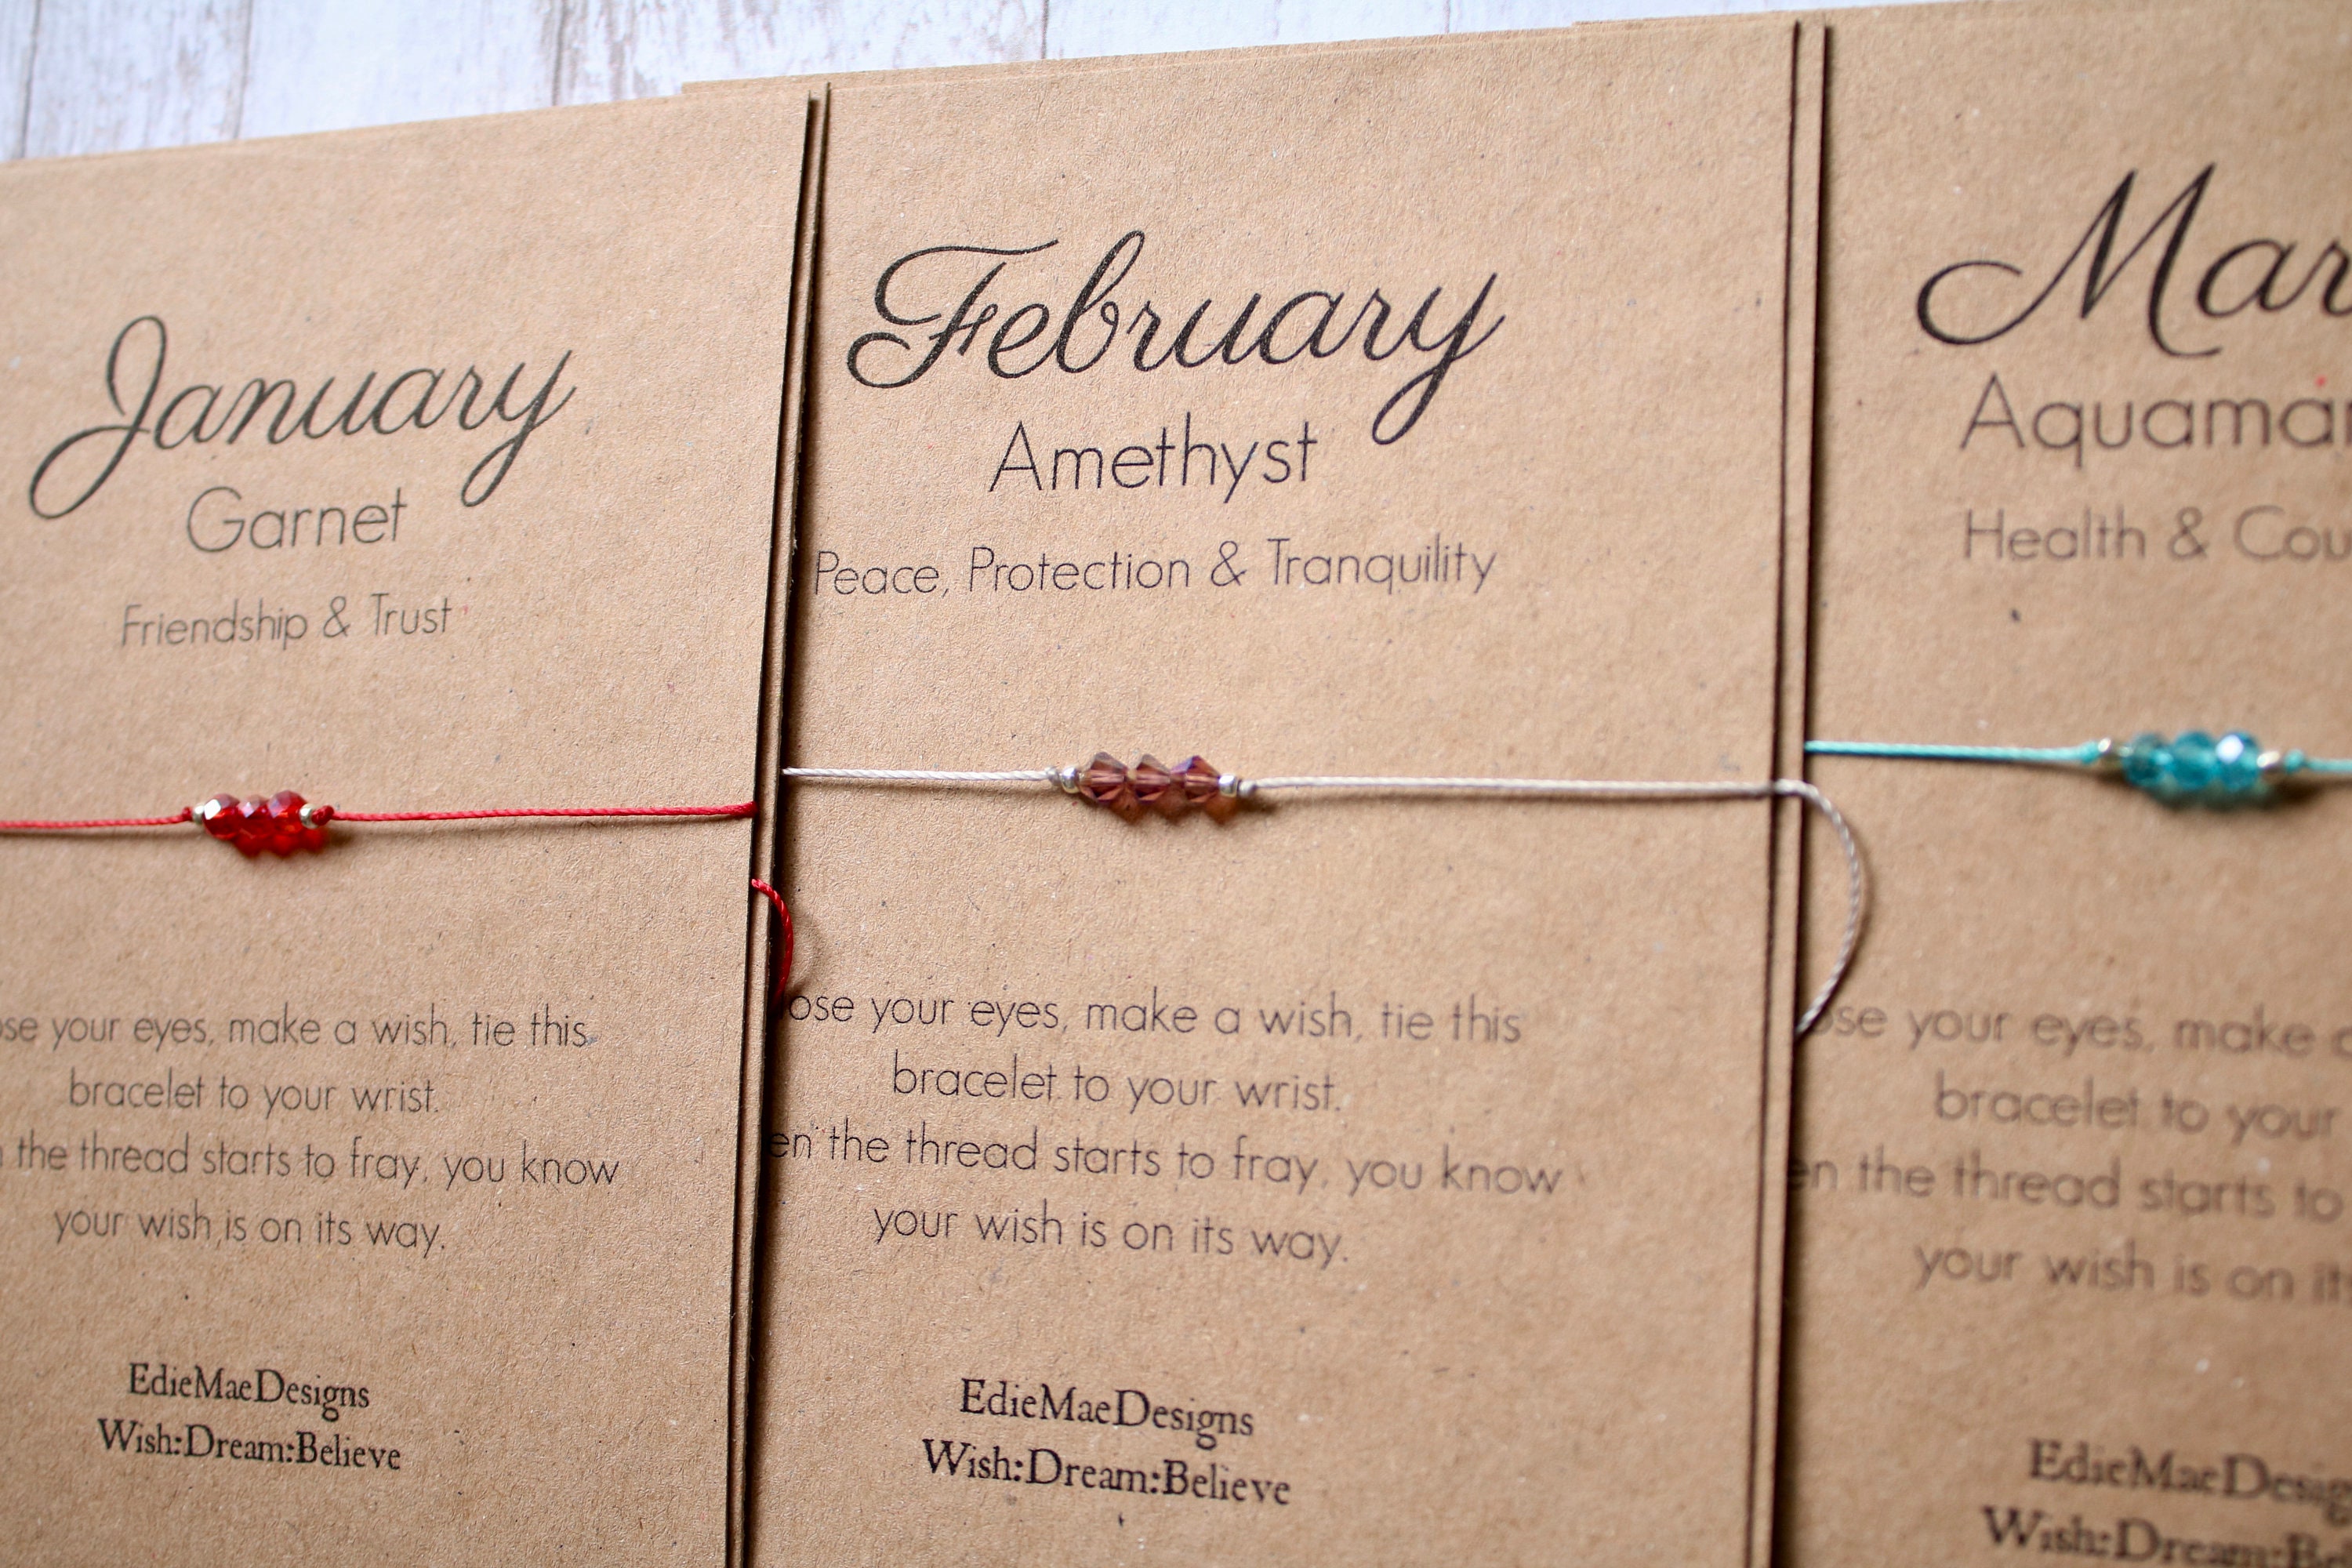 January
Garnet
Friendship & Trust
your eyes, make a wish, tie this
bracelet to your wrist.
the thread starts to fray, you know
your wish is on its way.
EdieMaeDesigns
Wish:Dream:Believe
February
Amethyst
Peace, Protection & Tranquility
ose your eyes, make a wish, tie this
bracelet to your wrist.
en the thread starts to fray, you know
your wish is on its way.
EdieMaeDesigns
Wish:Dream:Believe
Mar
Aquamar
Health & Cou
ose your eyes, make a
bracelet to your
en the thread starts to
your wish is on its
EdieMaeDesig
Wish:Dream:Be